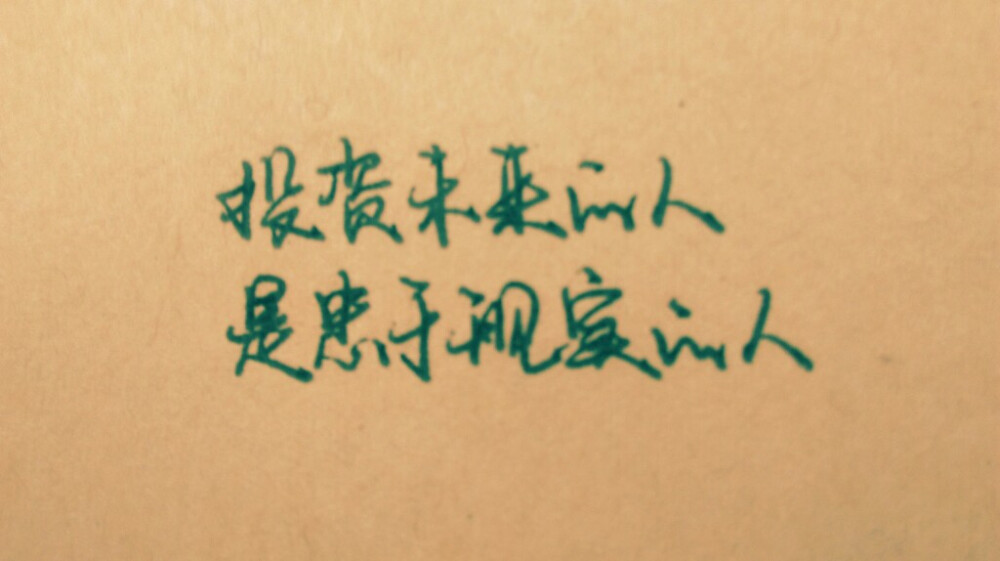 投资未来的人
是忠于现实的人